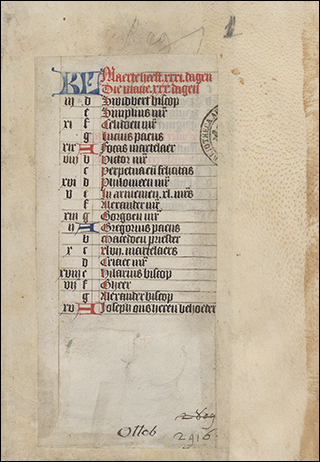 1
KL Maerte heeft .xxxi. dagen
Die mane .xxx. dagen
iii d Swidbert biscop
e Simplius mr̄
xi f
g Lucius paeus
xix A Focas martelaer
viii b Victor mr̄
c Perpetua en felicitas
xvi d Philomeen mr̄
v e In armenien .xl. mr̄s
f Alexander mr̄
xiii g Gorgon mr̄
ii A Gregorius paeus
b Macedon priester
x c xlvii. martelaers
d Ciriaec mr̄
xviii e Hilarius biscop
vii f
g Alexander biscop
xv A Joseph ons heren
Ottob
2919